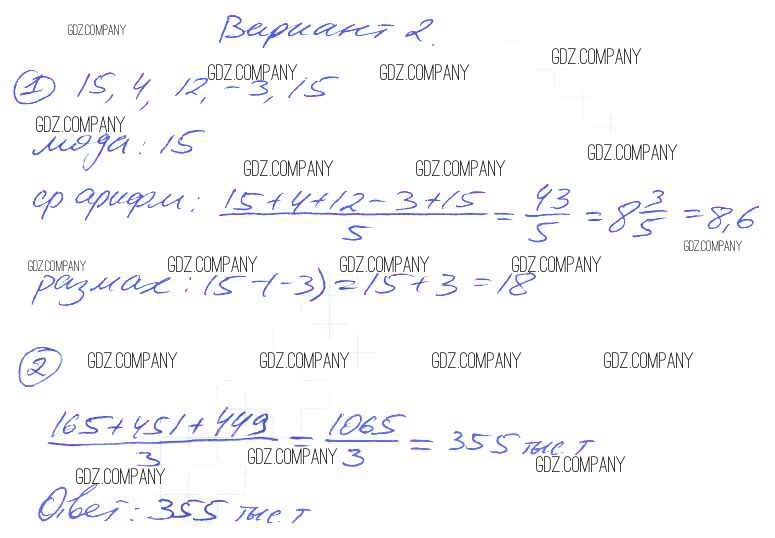 GDZ.COMPANY Вариант 2.
GDZ.COMPANY
GDZ.COMPANY GDZ.COMPANY
① 15, 4, 12, -3, 15
GDZ.COMPANY
мода: 15
GDZ.COMPANY
GDZ.COMPANY GDZ.COMPANY
ср арифм: (15+4+12-3+15)/5 = 43/5 = 8 3/5 = 8,6
GDZ.COMPANY
GDZ.COMPANY GDZ.COMPANY GDZ.COMPANY GDZ.COMPANY
размах: 15-(-3) = 15+3 = 18
② GDZ.COMPANY GDZ.COMPANY GDZ.COMPANY GDZ.COMPANY
(165+451+449)/3 = 1065/3 = 355 тыс. т
GDZ.COMPANY GDZ.COMPANY GDZ.COMPANY
Ответ: 355 тыс. т